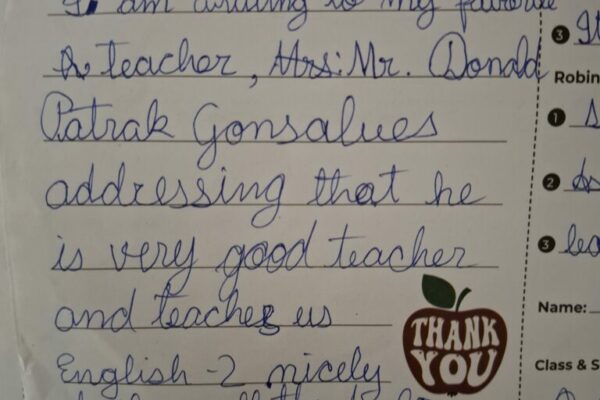 I am writing to my favorite
teacher, Mr. Donald
Patrak Gonsalves
addressing that he
is very good teacher
and teaches us
English-2 nicely
THANK
YOU
3
Robin
1
2
3
Name:
Class & S